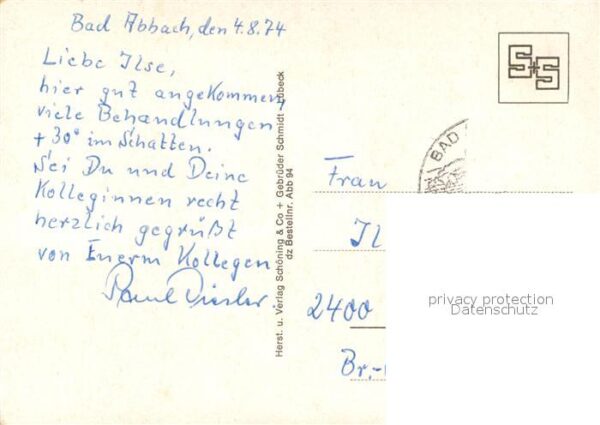 Bad Abbach, den 4.8.74
Liebe Ilse,
hier gut angekommen,
viele Behandlungen
+30° im Schatten.
Sei Du und Deine
Kolleginnen recht
herzlich gegrüßt
von Euerm Kollegen
Paul
Herst. u. Verlag Schöning & Co + Gebrüder Schmidt · Lübeck
dz Bestellnr. Abb 94
S+S
BAD
Frau
Il
2400
Br.-
privacy protection
Datenschutz